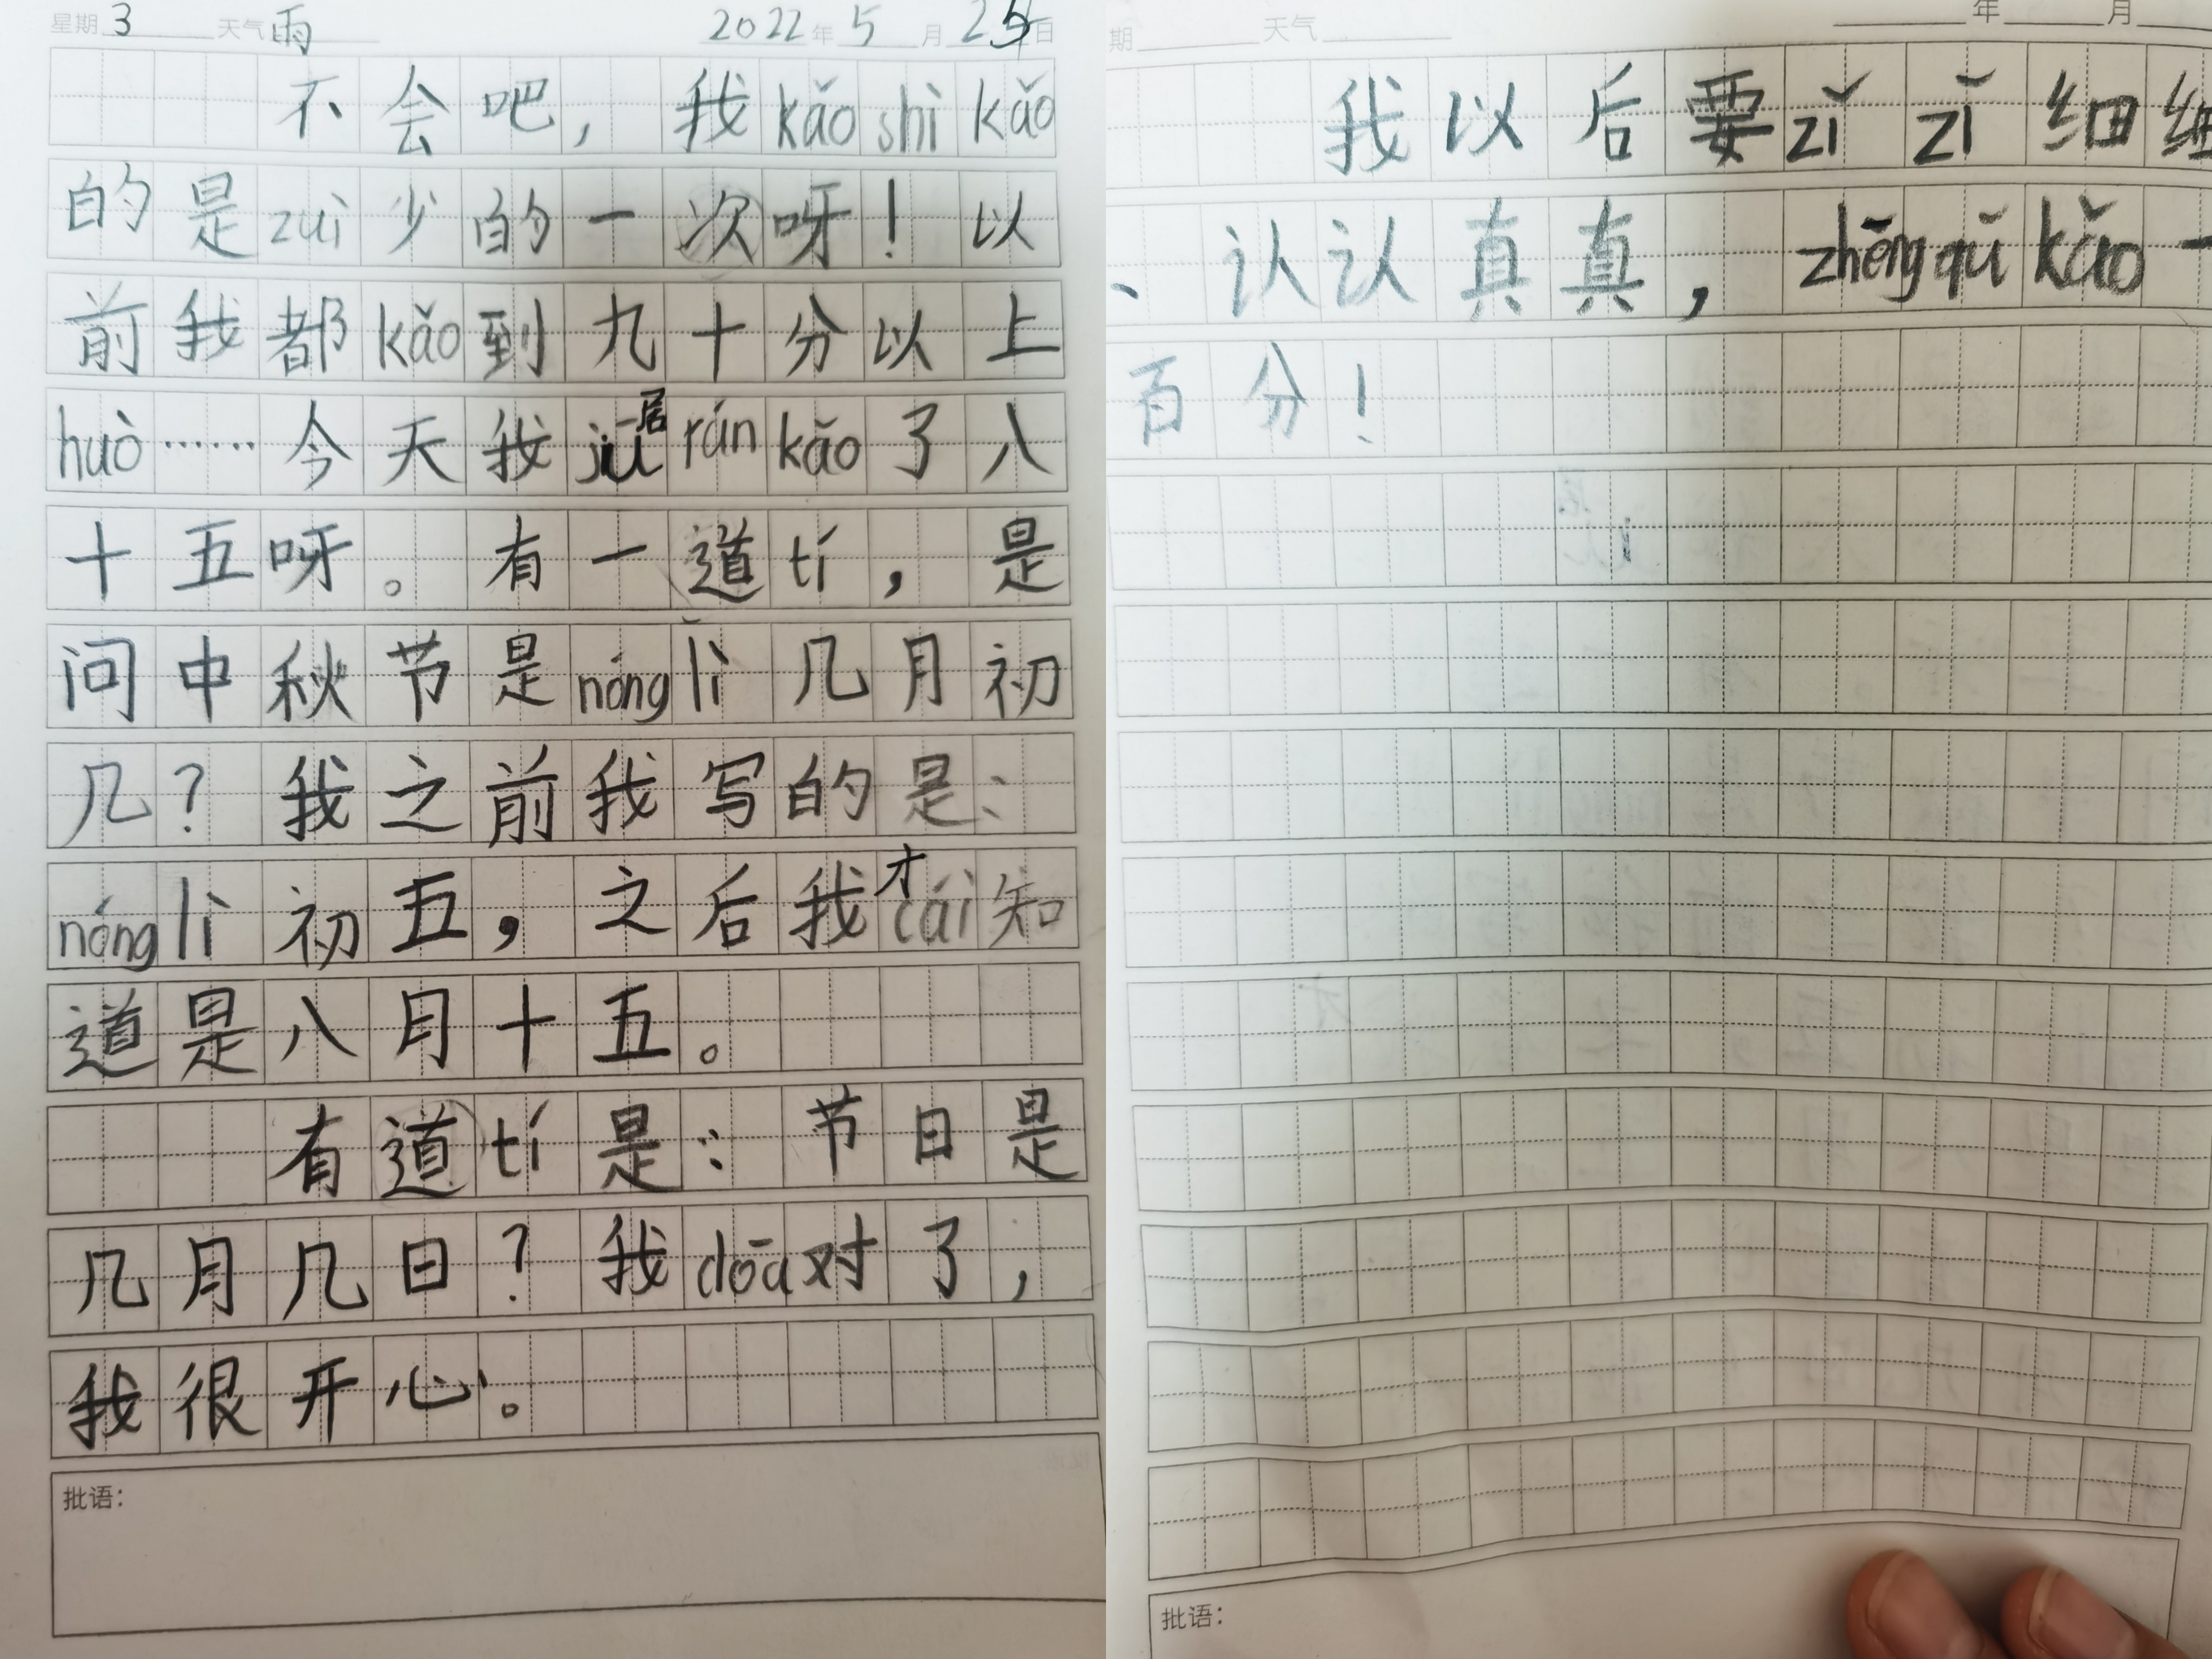 星期 3 天气 雨 2022年 5 月 25 日
不会吧，我kǎo shì kǎo
的是zuì少的一次呀！以
前我都kǎo到九十分以上
huò……今天我jū居rán kǎo了八
十五呀。有一道tí，是
问中秋节是nóng lì几月初
几？我之前我写的是：
nóng lì初五，之后我cái才知
道是八月十五。
有道tí是：节日是
几月几日？我dōa对了，
我很开心。
批语：
期 天气 年 月
我以后要zǐ zǐ细细
、认认真真，zhēng qǔ kǎo一
百分！
批语：